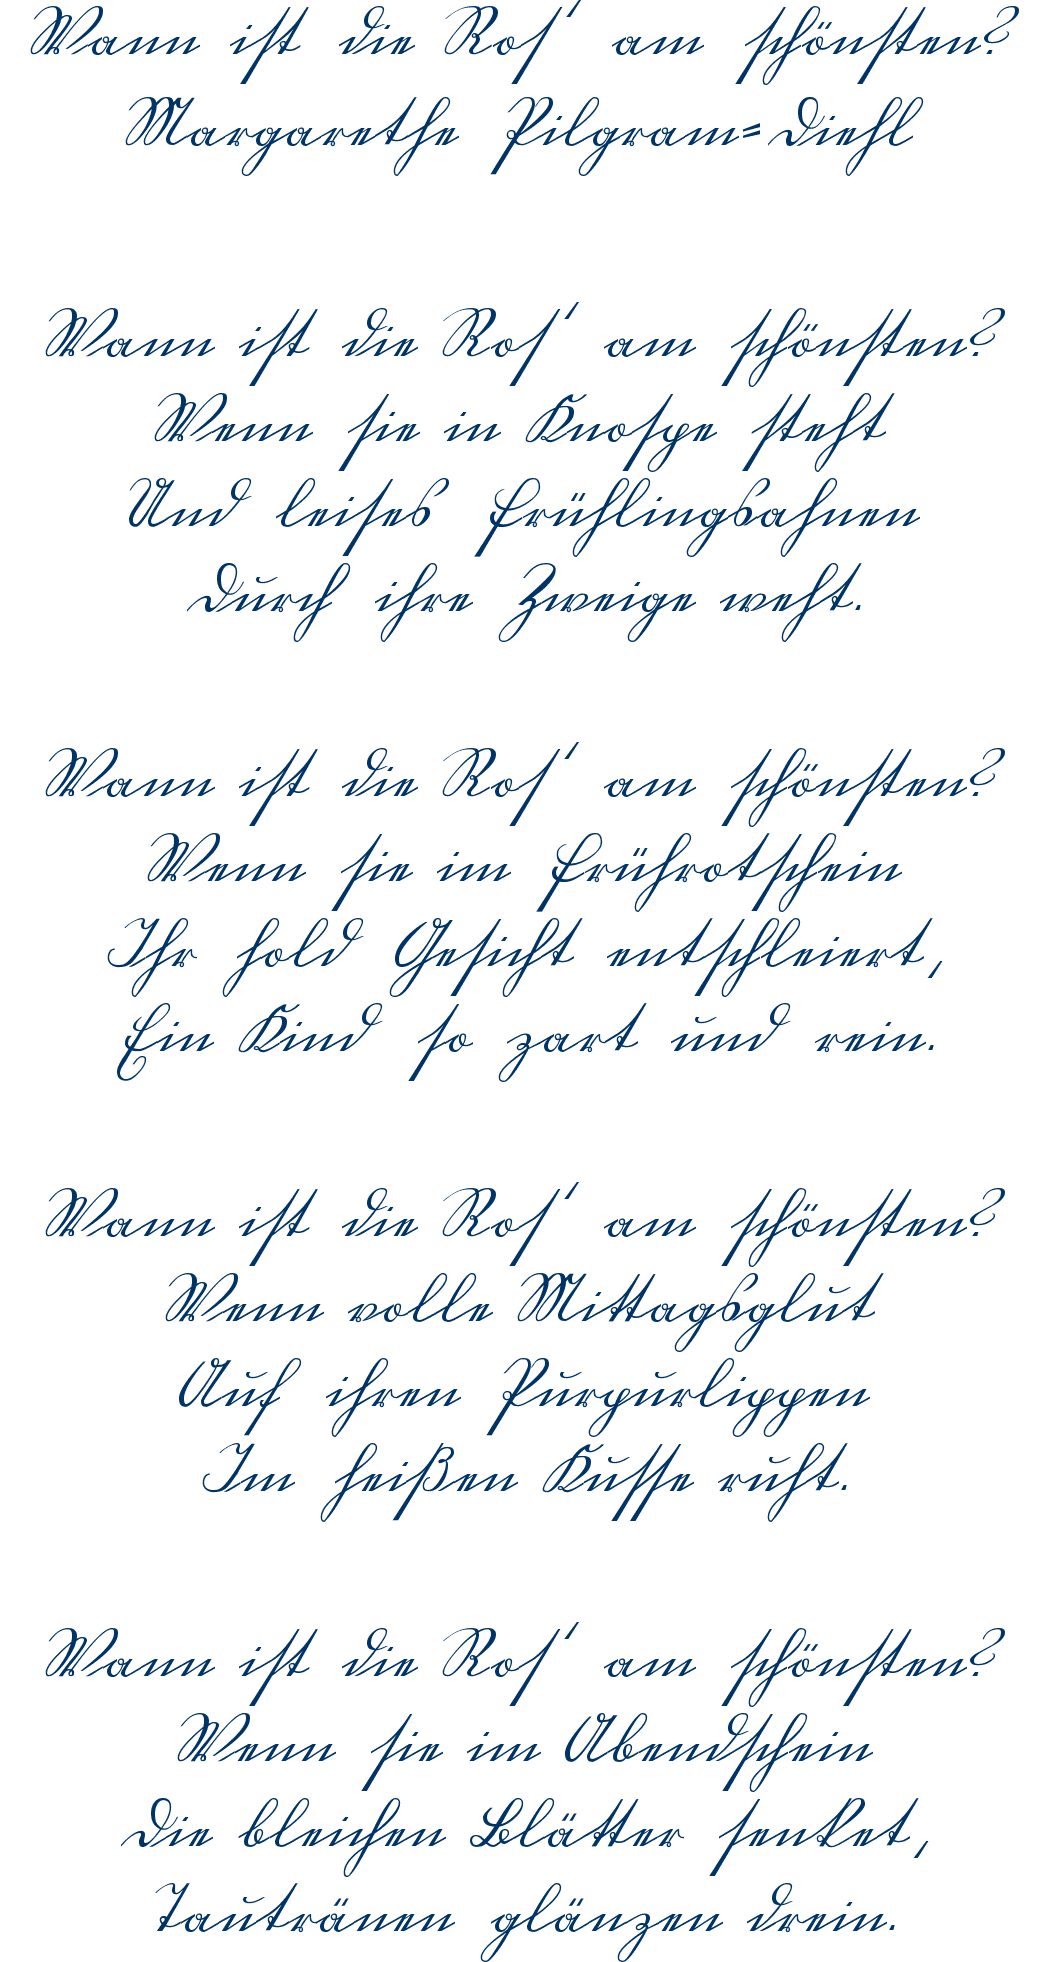 Wann ist die Ros' am schönsten?
Margarethe Pilgram-Diehl
Wann ist die Ros' am schönsten?
Wenn sie in Knospe steht
Und leises Frühlingsahnen
Durch ihre Zweige weht.
Wann ist die Ros' am schönsten?
Wenn sie im Frührotschein
Ihr hold Gesicht entschleiert,
Ein Kind so zart und rein.
Wann ist die Ros' am schönsten?
Wenn volle Mittagsglut
Auf ihren Purpurlippen
Im heißen Kusse ruht.
Wann ist die Ros' am schönsten?
Wenn sie im Abendschein
Die bleichen Blätter senket,
Tautränen glänzen drein.